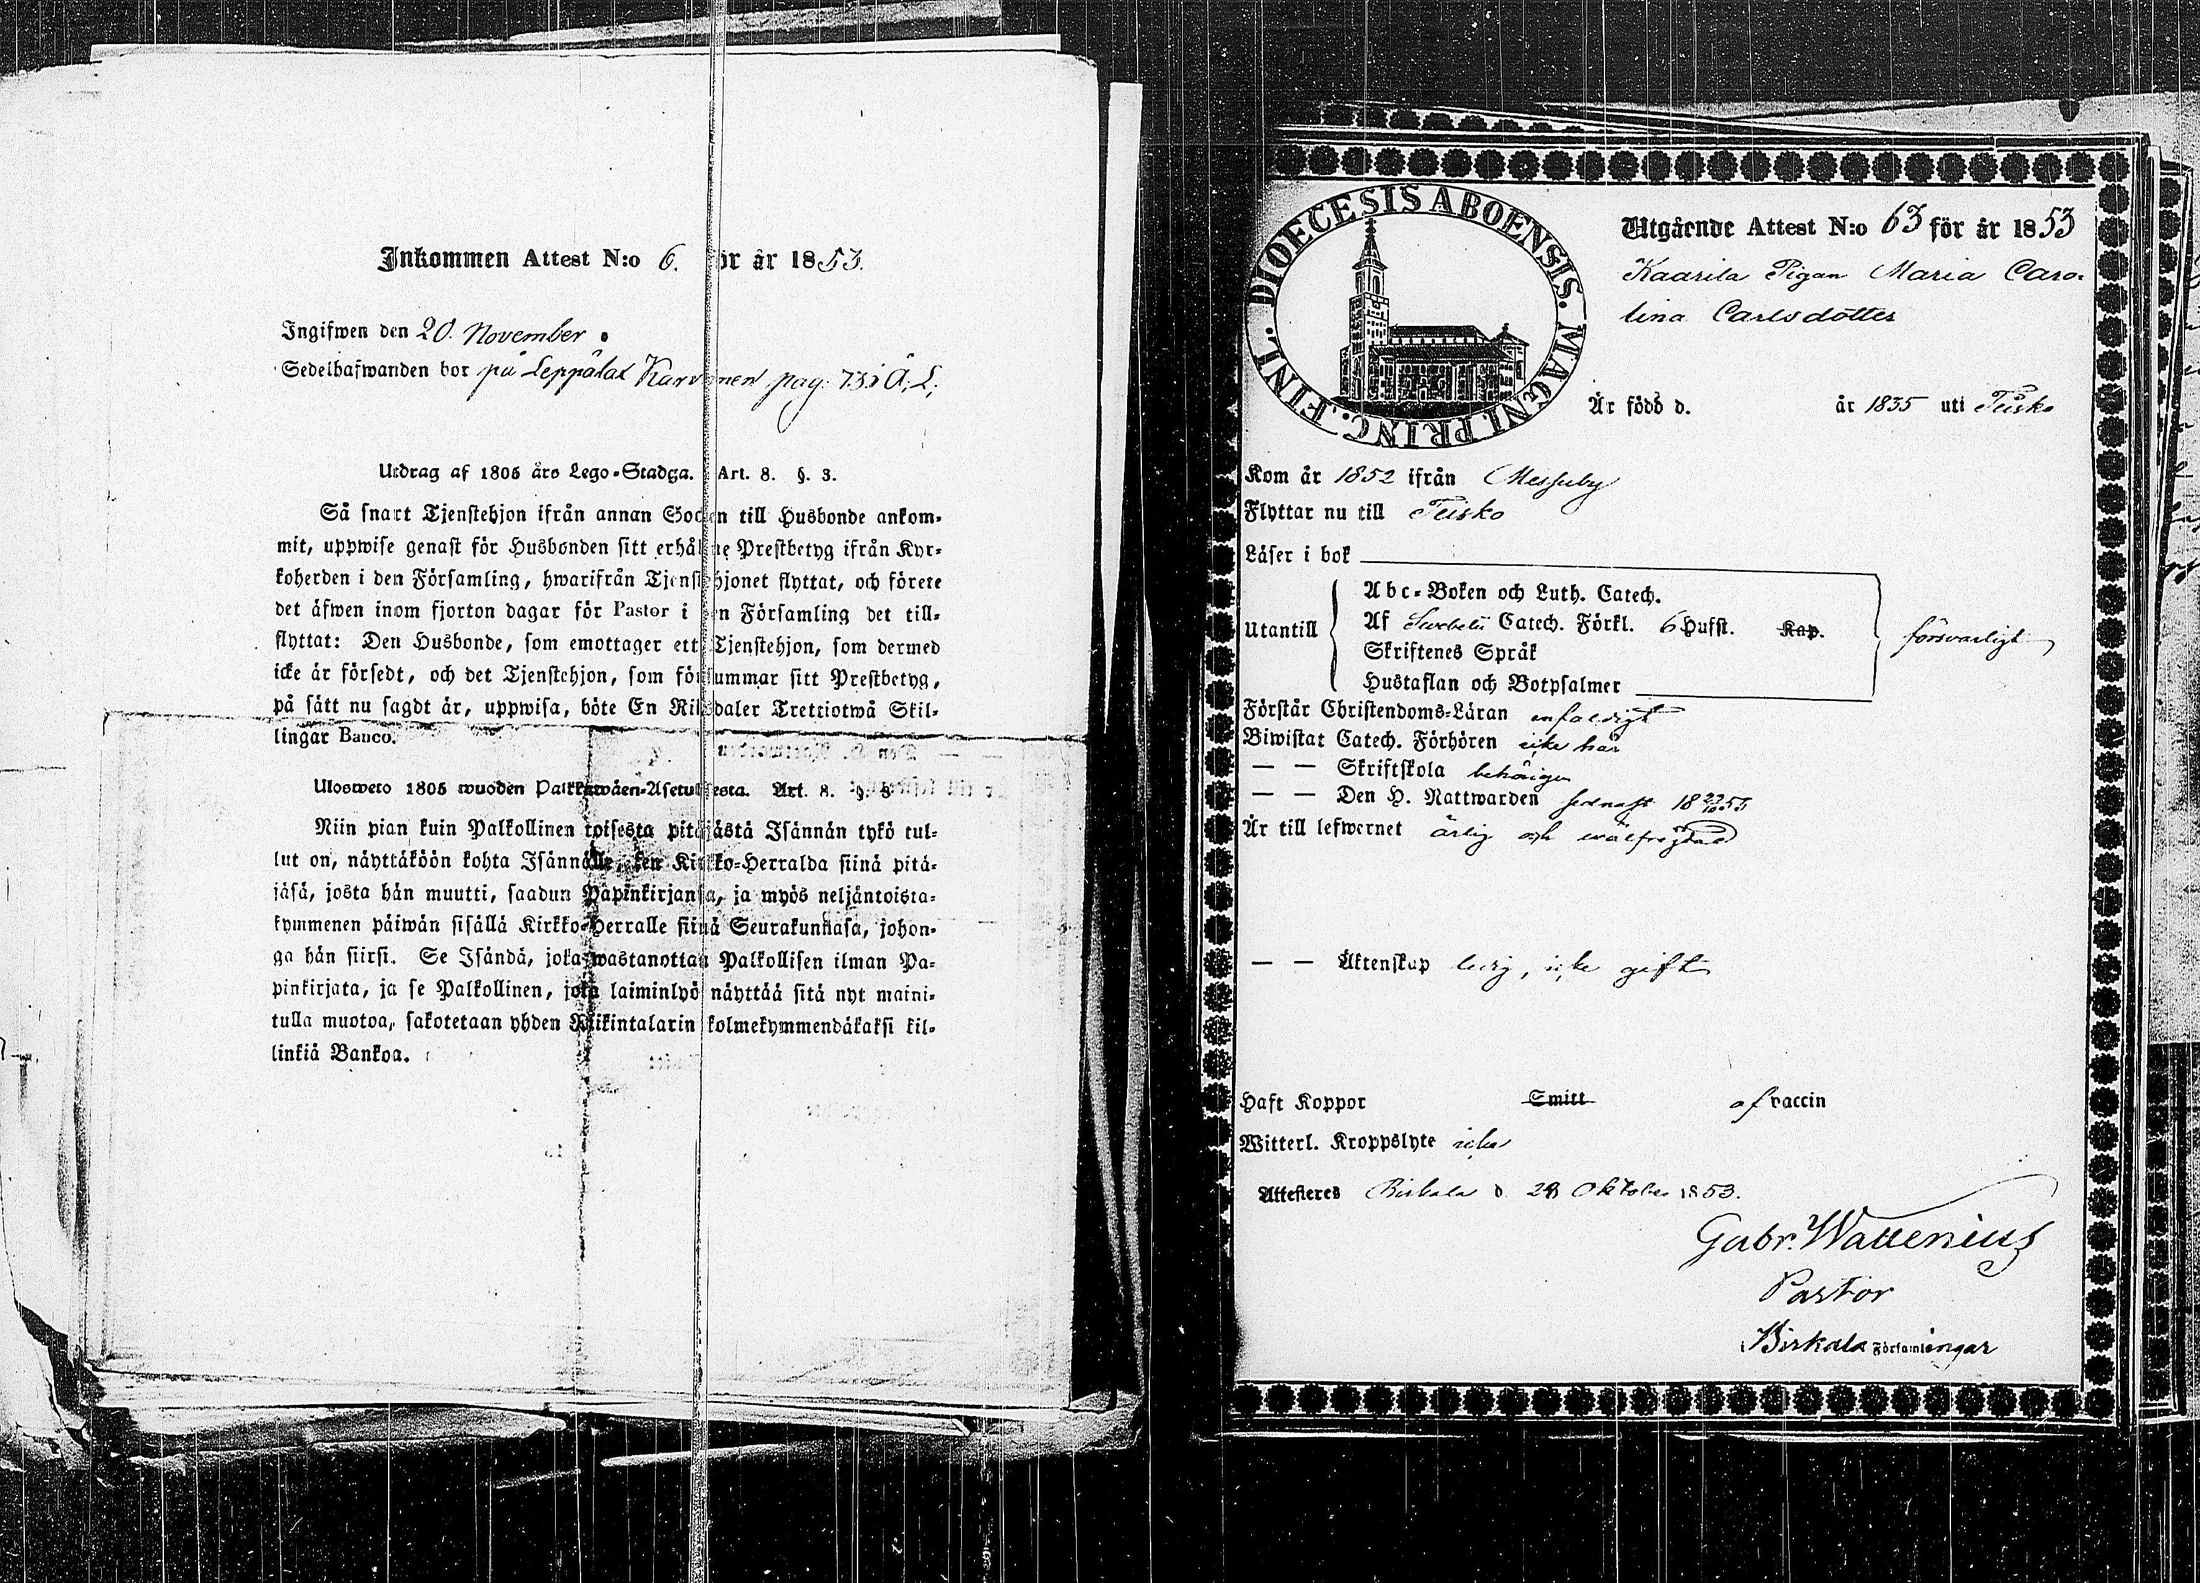 Inkommen Attest N:o 6. för år 1853.
Ingifwen den 20. November.
Sedelhafwanden bor på Leppälax Karvonen pag. 73 i Ä. L.
Utdrag af 1805 års Lego-Stadga. Art. 8. §. 3.
Så snart Tjenstehjon ifrån annan Socken till Husbonde ankom-
mit, uppwise genast för Husbonden sitt erhållne Prestbetyg ifrån Kyr-
koherden i den Församling, hwarifrån Tjenstehjonet flyttat, och förete
det äfwen inom fjorton dagar för Pastor i den Församling det till-
flyttat: Den Husbonde, som emottager ett Tjenstehjon, som dermed
icke är försedt, och det Tjenstehjon, som försummar sitt Prestbetyg,
på sätt nu sagdt är, uppwisa, böte En Riksdaler Trettiotwå Skil-
lingar Banco.
Ulosweto 1805 wuoden Palkkawäen-Asetuksesta. Art. 8. §. 3
Niin pian kuin Palkollinen toisesta pitäjästä Isännän tykö tul-
lut on, näyttäköön kohta Isännälle, sen Kirkko-Herralda siinä pitä-
jäsä, josta hän muutti, saadun Papinkirjansa, ja myös neljäntoista-
kymmenen päiwän sisällä Kirkko-Herralle siinä Seurakunnasa, johon-
ga hän siirsi. Se Isändä, joka wastanottaa Palkollisen ilman Pa-
pinkirjata, ja se Palkollinen, joka laiminlyö näyttää sitä nyt maini-
tulla muotoa, sakotetaan yhden Riikintalarin kolmekymmendäkaksi kil-
linkiä Bankoa.
DIOECESIS ABOENSIS. MAGNI. PRINC. FINL.
Utgående Attest N:o 63 för år 1853
Kaarila Pigan Maria Caro-
lina Carlsdotter
Är född d. år 1835 uti Teisko
Kom år 1852 ifrån Messuby
Flyttar nu till Teisko
Läser i bok
Abc-Boken och Luth. Catech.
Utantill Af Svebelii Catech. Förkl. 6 Hufst. Kap. försvarligt
Skriftenes Språk
Hustaflan och Botpsalmer
Förstår Christendoms-Läran enfaldigt
Biwistat Catech. Förhören icke här
— — Skriftskola behörigen
— — Den H. Nattwarden sednast 18 23/10 53
Är till lefwernet ärlig och wälfrejdad
— — Äktenskap ledig, icke gift
Haft Koppor Smitt af vaccin
Witterl. Kroppslyte icke
Attesteres Birkala d. Oktober 1853.
Gabr. Wallenius
Pastor
Birkala Församlingar